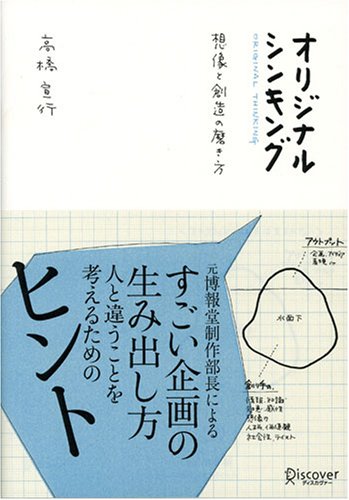 オリジナル
シンキング
ORIGINAL THINKING
想像と創造の磨き方
高橋宣行
元博報堂制作部長による
すごい企画の
生み出し方
人と違うことを
考えるための
ヒント
アウトプット
水面下
創り手の、
Discover
ディスカヴァー